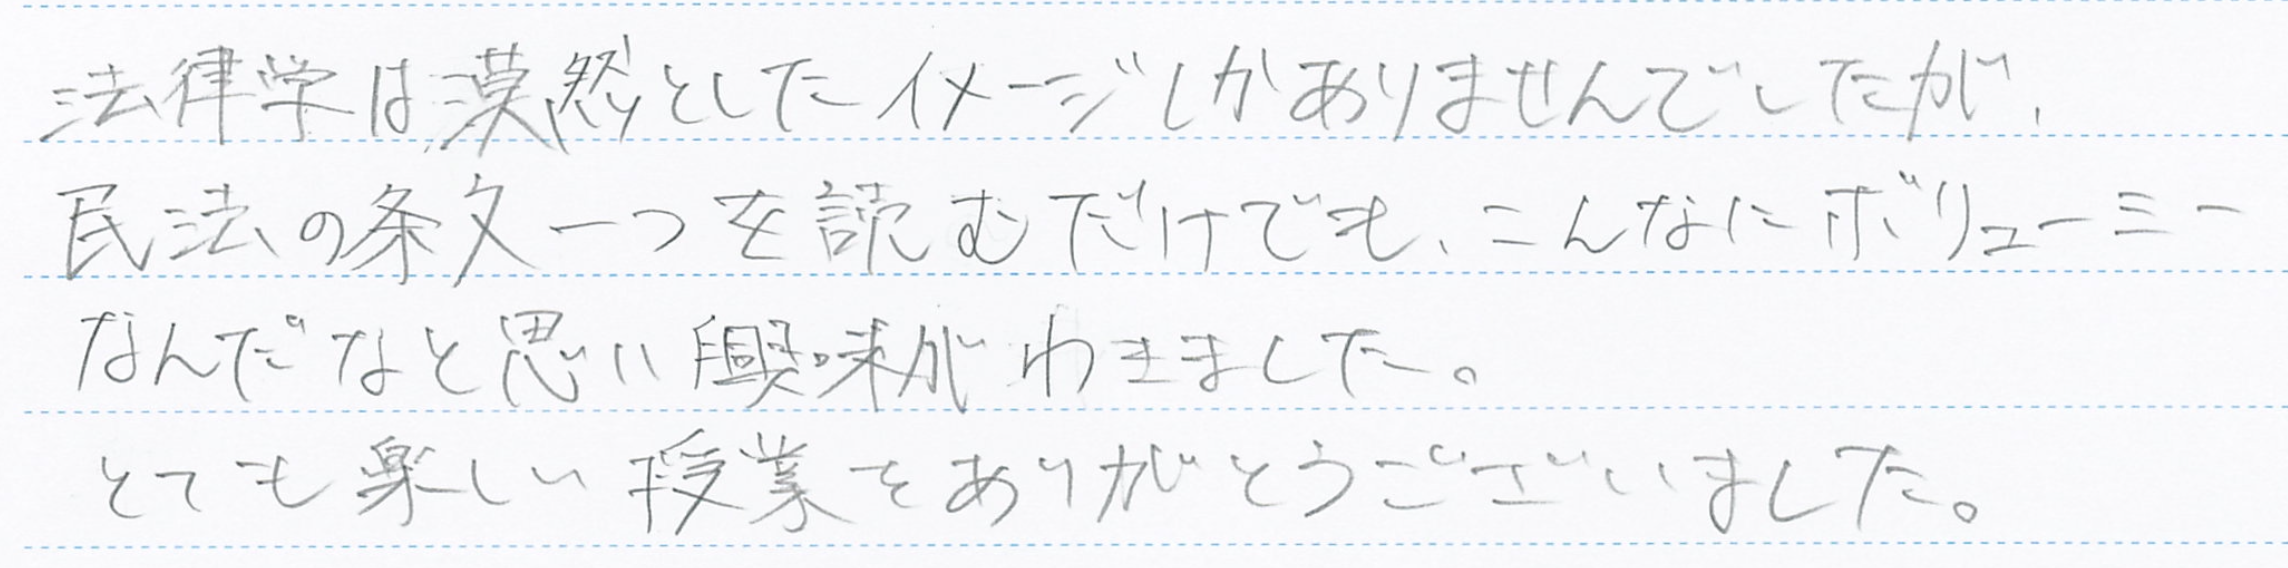 法律学は漠然としたイメージしかありませんでしたが、
民法の条文一つを読むだけでも、こんなにボリューミー
なんだなと思い興味がわきました。
とても楽しい授業をありがとうございました。